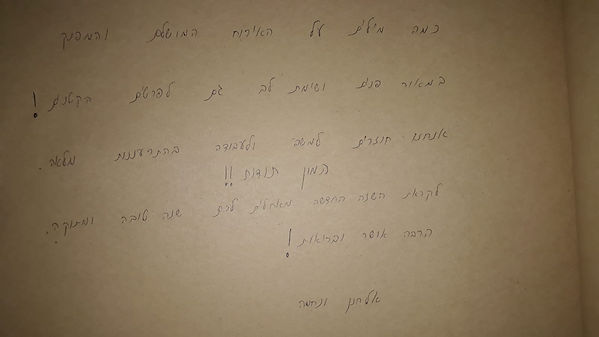 כמה מילים על האירוח המושלם והמפנק
במאור פנים ושימת לב גם לפרטים הקטנים!
אנחנו חוזרים למשק ולעבודה בהתרעננות מלאה.
המון תודות!!
לקראת השנה החדשה מאחלים לכם שנה טובה ומתוקה.
הרבה אושר ובריאות!
אלחנן ונחמה